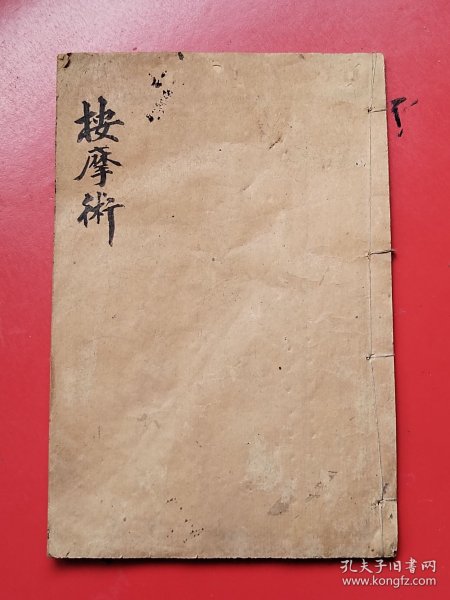 按摩術
孔夫子旧书网
www.kongfz.com